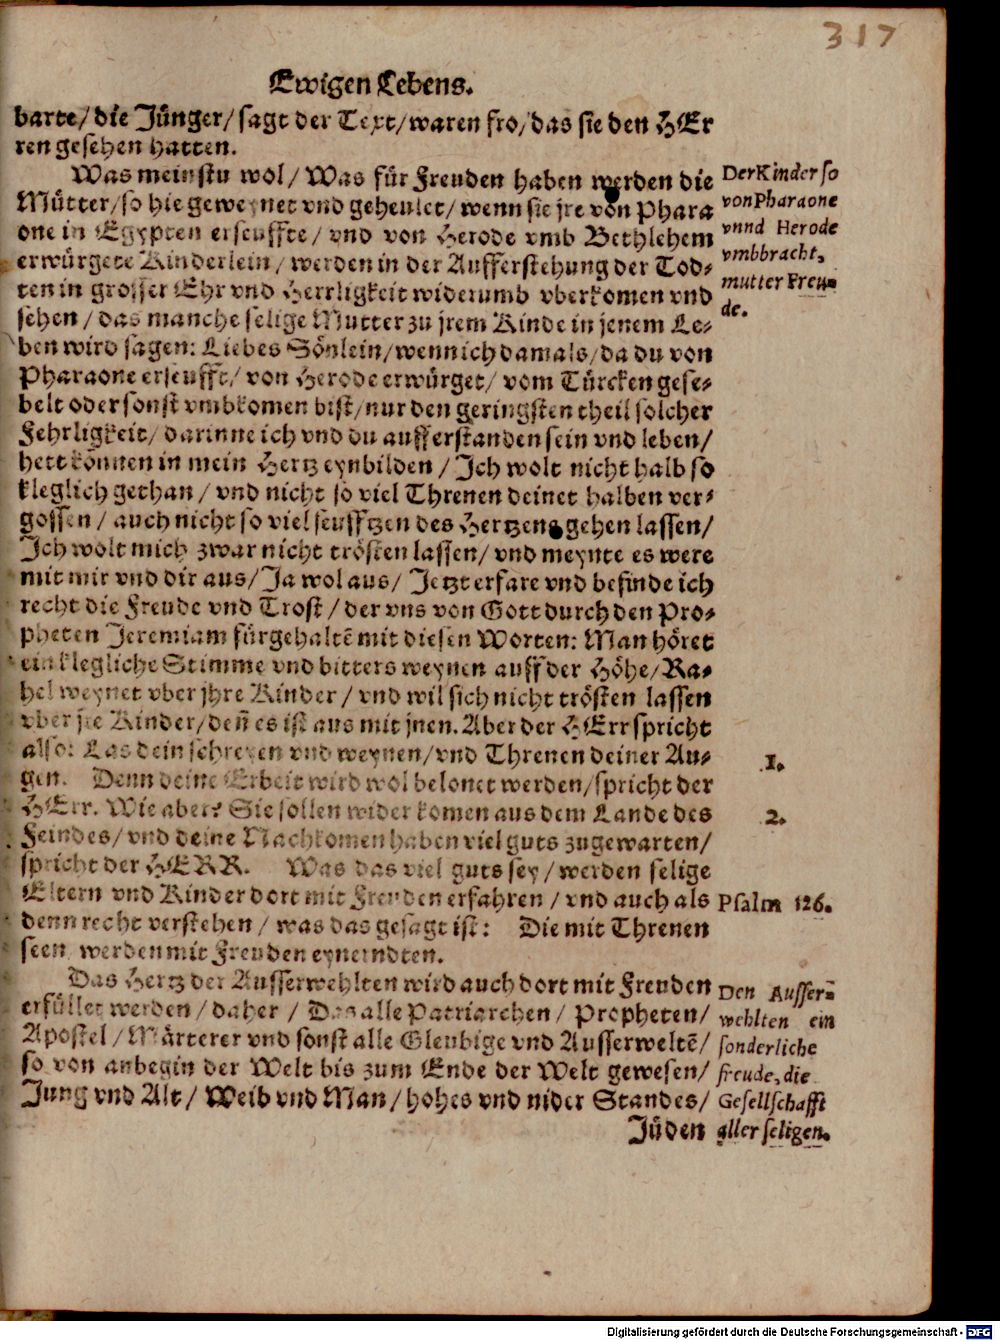 317
Ewigen Lebens.
barte/die Jünger/sagt der Text/waren fro/das sie den HEr
ren gesehen hatten.
Was meinstu wol/Was für Freuden haben werden die
Mütter/so hie geweynet vnd geheulet/wenn sie jre von Phara
one in Egypten erseuffte/vnd von Herode vmb Bethlehem
erwürgete Kinderlein/werden in der Aufferstehung der Tod-
ten in grosser Ehr vnd Herrligkeit widerumb vberkomen vnd
sehen/das manche selige Mutter zu jrem Kinde in jenem Le-
ben wird sagen: Liebes Sönlein/wenn ich damals/da du von
Pharaone erseufft/von Herode erwürget/vom Türcken gese-
belt oder sonst vmbkomen bist/nur den geringsten theil solcher
Fehrligkeit/darinne ich vnd du aufferstanden sein vnd leben/
hett können in mein Hertz eynbilden/Ich wolt nicht halb so
kleglich gethan/vnd nicht so viel Threnen deinet halben ver-
gossen/auch nicht so viel seufftzen des Hertzens gehen lassen/
Ich wolt mich zwar nicht trösten lassen/vnd meynte es were
mit mir vnd dir aus/Ja wol aus/Jetzt erfare vnd befinde ich
recht die Freude vnd Trost/der vns von Gott durch den Pro-
pheten Jeremiam fürgehaltē mit diesen Worten: Man höret
ein klegliche Stimme vnd bitters weynen auff der Höhe/Ra-
hel weynet vber jhre Kinder/vnd wil sich nicht trösten lassen
vber jre Kinder/deñ es ist aus mit jnen. Aber der HErr spricht
also: Las dein schreyen vnd weynen/vnd Threnen deiner Au-
gen. Denn deine Erbeit wird wol belonet werden/spricht der
HErr. Wie aber? Sie sollen wider komen aus dem Lande des
Feindes/vnd deine Nachkomen haben viel guts zugewarten/
spricht der HERR. Was das viel guts sey/werden selige
Eltern vnd Kinder dort mit Freuden erfahren/vnd auch als
denn recht verstehen/was das gesagt ist: Die mit Threnen
seen werden mit Freuden eynerndten.
Das Hertz der Ausserwehlten wird auch dort mit Freuden
erfüllet werden/daher/Das alle Patriarchen/Propheten/
Apostel/Märterer vnd sonst alle Gleubige vnd Ausserweltē/
so von anbegin der Welt bis zum Ende der Welt gewesen/
Jung vnd Alt/Weib vnd Man/hohes vnd nider Standes/
Jüden
Der Kinder so
von Pharaone
vnnd Herode
vmbbracht,
mutter Freu-
de.
1.
2.
Psalm 126.
Den Ausser-
wehlten ein
sonderliche
freude, die
Gesellschafft
aller seligen.
Digitalisierung gefördert durch die Deutsche Forschungsgemeinschaft - DFG